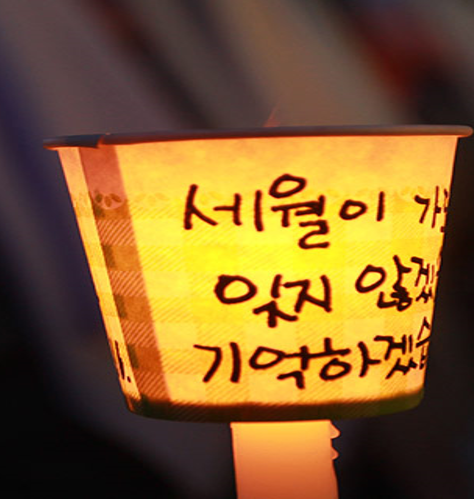 세월이
잊지 않겠
기억하겠습